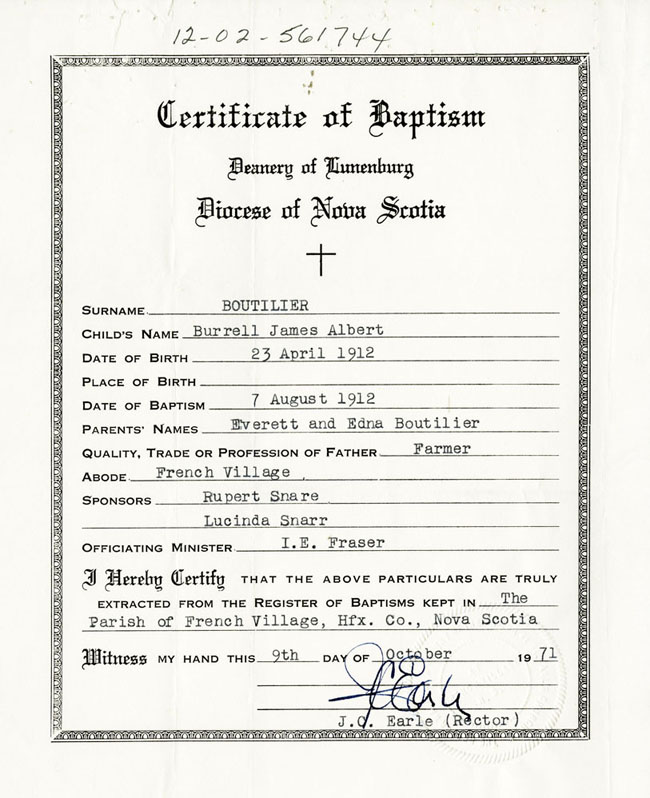 12-02-561744
Certificate of Baptism
Deanery of Lunenburg
Diocese of Nova Scotia
SURNAME BOUTILIER
CHILD'S NAME Burrell James Albert
DATE OF BIRTH 23 April 1912
PLACE OF BIRTH
DATE OF BAPTISM 7 August 1912
PARENTS' NAMES Everett and Edna Boutilier
QUALITY, TRADE OR PROFESSION OF FATHER Farmer
ABODE French Village
SPONSORS Rupert Snare
Lucinda Snarr
OFFICIATING MINISTER I.E. Fraser
I Hereby Certify THAT THE ABOVE PARTICULARS ARE TRULY
EXTRACTED FROM THE REGISTER OF BAPTISMS KEPT IN The
Parish of French Village, Hfx. Co., Nova Scotia
Witness MY HAND THIS 9th DAY OF October 1971
J.C. Earle (Rector)